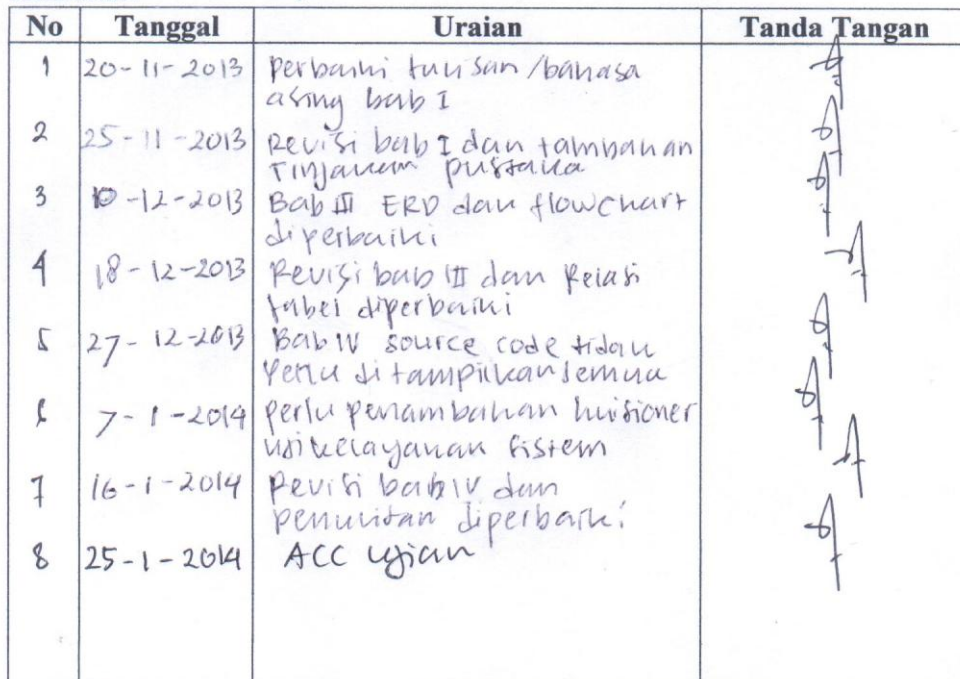 No Tanggal Uraian Tanda Tangan
1 20-11-2013 Perbaiki tulisan/bahasa
asing bab I
2 25-11-2013 Revisi bab I dan tambahan
Tinjauan pustaka
3 10-12-2013 Bab III ERD dan flowchart
diperbaiki
4 18-12-2013 Revisi bab III dan Relasi
tabel diperbaiki
5 27-12-2013 Bab IV source code tidak
Perlu ditampilkan semua
6 7-1-2014 perlu penambahan kuisioner
uji kelayakan sistem
7 16-1-2014 Revisi bab IV dan
penulisan diperbaiki
8 25-1-2014 ACC ujian